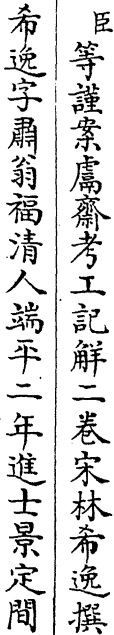 臣等謹案鬳齋考工記解二卷宋林希逸撰
希逸字肅翁福清人端平二年進士景定間